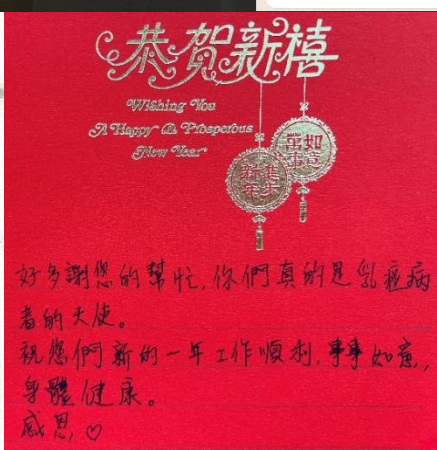 恭贺新禧
Wishing You
A Happy & Prosperous
New Year
萬事如意
新年進步
好多謝您的幫忙,你們真的是乳癌病
者的天使。
祝您們新的一年工作順利,事事如意,
身體健康。
感恩,♡